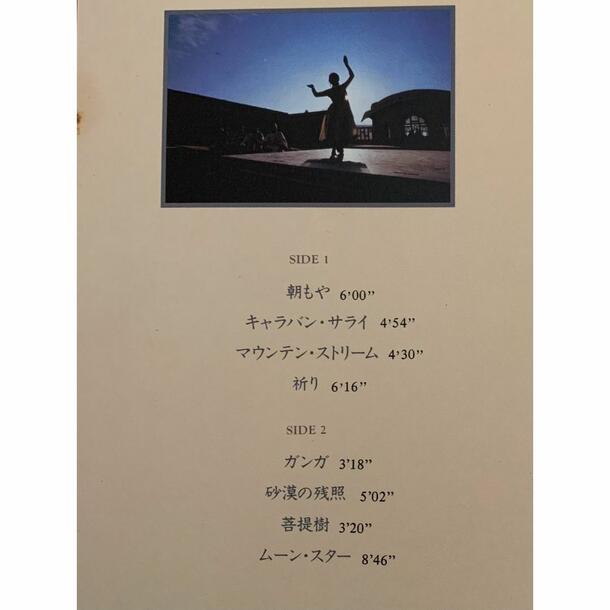 SIDE 1
朝もや 6'00"
キャラバン・サライ 4'54"
マウンテン・ストリーム 4'30"
祈り 6'16"
SIDE 2
ガンガ 3'18"
砂漠の残照 5'02"
菩提樹 3'20"
ムーン・スター 8'46"